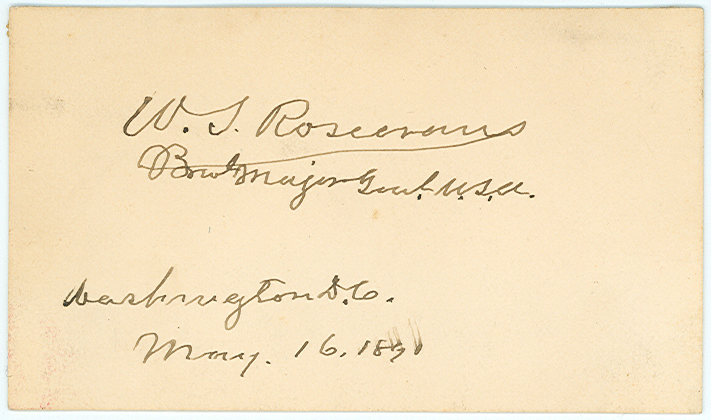 W. S. Rosecrans
Brvt Major Genl. U.S.A.
Washington D.C.
May. 16. 1891